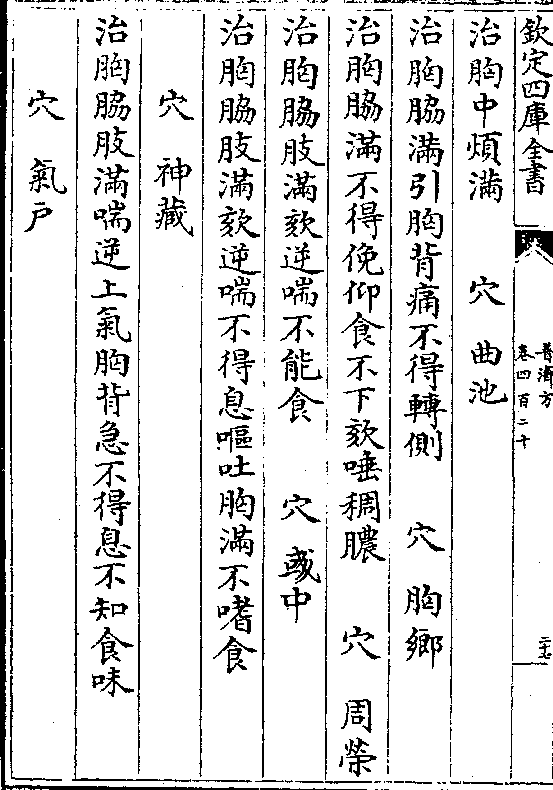 欽定四庫全書
普濟方
卷四百二十
治胸中煩滿　穴　曲池
治胸脇滿引胸背痛不得轉側　穴　胸鄉
治胸脇滿不得俛仰食不下欬唾稠膿　穴　周榮
治胸脇肢滿欬逆喘不能食　穴　彧中
治胸脇肢滿欬逆喘不得息嘔吐胸滿不嗜食
穴　神藏
治胸脇肢滿喘逆上氣胸背急不得息不知食味
穴　氣戶